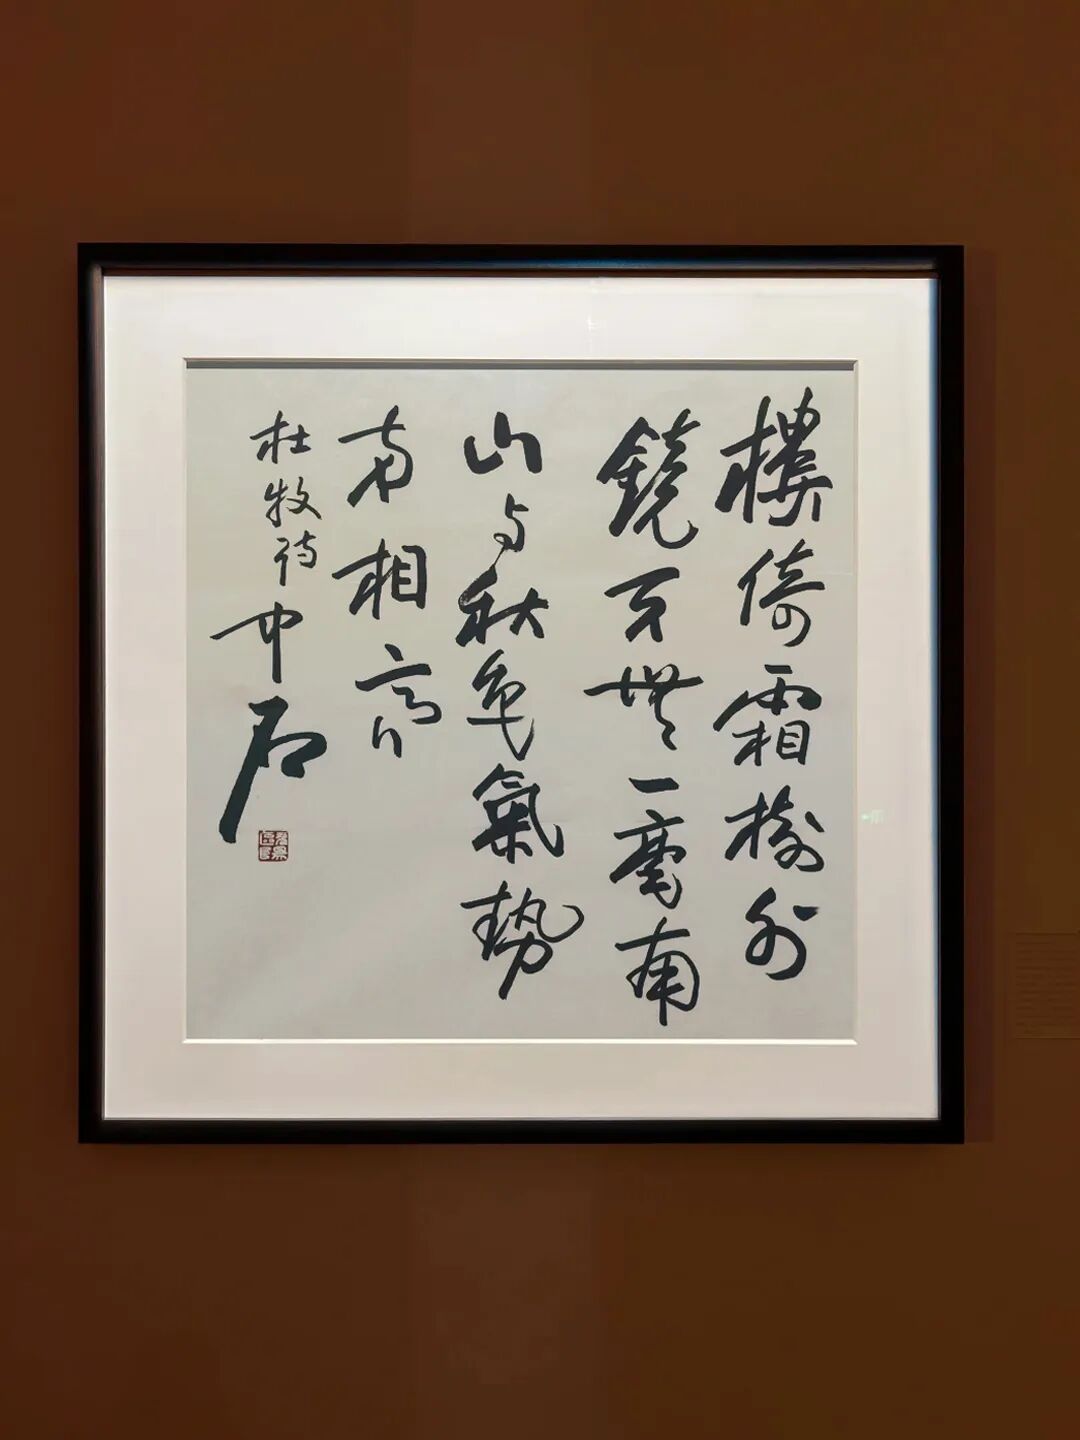 樓倚霜樹外
鏡天無一毫南
山与秋色氣勢
两相高
杜牧诗中石